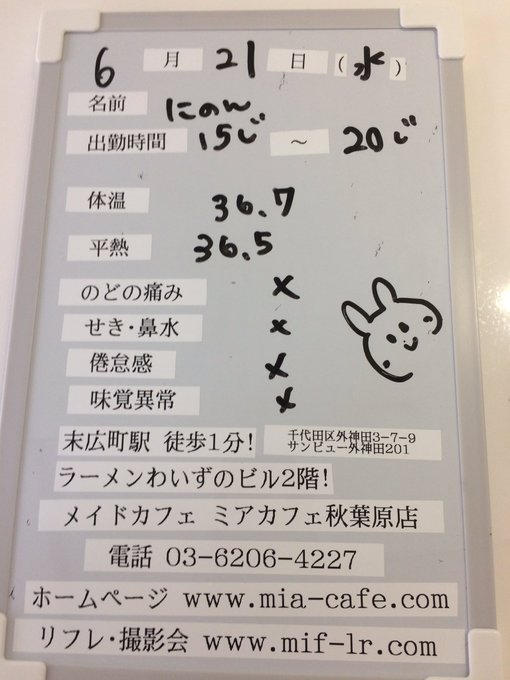 6月21日(水)
名前 にのん
出勤時間 15じ ～ 20じ
体温 36.7
平熱 36.5
のどの痛み ×
せき・鼻水 ×
倦怠感 ×
味覚異常 ×
末広町駅 徒歩1分!
千代田区外神田3-7-9
サンビュー外神田201
ラーメンわいずのビル2階!
メイドカフェ ミアカフェ秋葉原店
電話 03-6206-4227
ホームページ www.mia-cafe.com
リフレ・撮影会 www.mif-lr.com